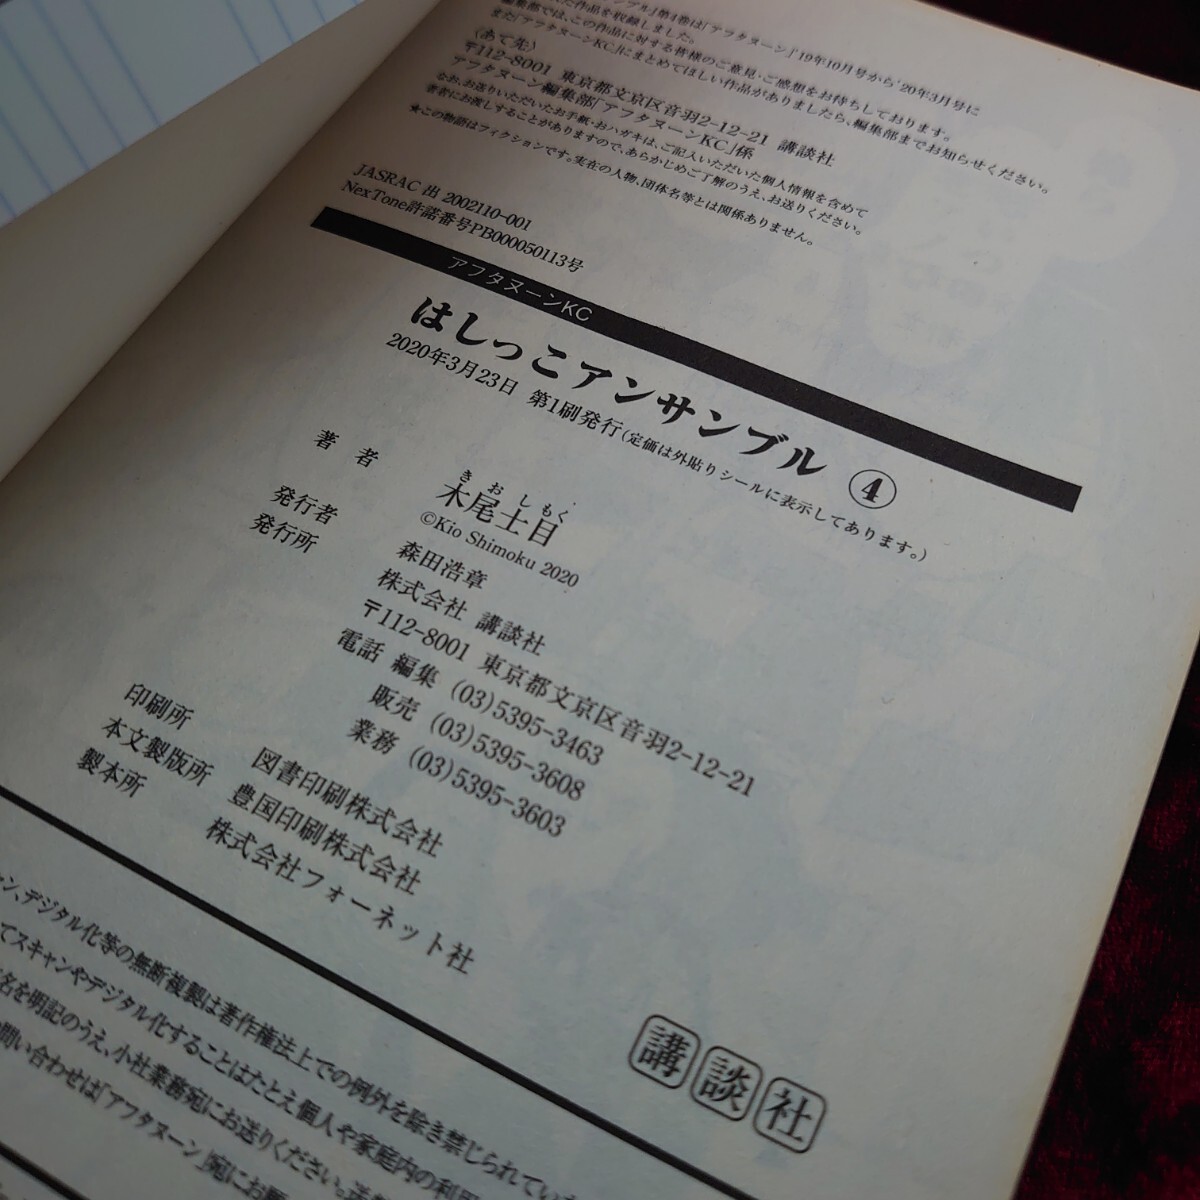 ンブル』第4巻は「アフタヌーン」'19年10月号から'20年3月号に
た作品を収録しました。
編集部では、この作品に対する皆様のご意見・ご感想をお待ちしております。
また「アフタヌーンKC」にまとめてほしい作品がありましたら、編集部までお知らせください。
〈あて先〉
〒112-8001 東京都文京区音羽2-12-21 講談社
アフタヌーン編集部「アフタヌーンKC」係
なお、お送りいただいたお手紙・おハガキは、ご記入いただいた個人情報を含めて
著者にお渡しすることがありますので、あらかじめご了解のうえ、お送りください。
★この物語はフィクションです。実在の人物、団体名等とは関係ありません。
JASRAC 出 2002110-001
NexTone許諾番号PB000050113号
アフタヌーンKC
はしっこアンサンブル ④
2020年3月23日 第1刷発行(定価は外貼りシールに表示してあります。)
著者 木尾士目
きおしもく
©Kio Shimoku 2020
発行者 森田浩章
発行所 株式会社 講談社
〒112-8001 東京都文京区音羽2-12-21
電話 編集 (03)5395-3463
販売 (03)5395-3608
業務 (03)5395-3603
印刷所 図書印刷株式会社
本文製版所 豊国印刷株式会社
製本所 株式会社フォーネット社
講談社
ン、デジタル化等の無断複製は著作権法上での例外を除き禁じられてい
てスキャンやデジタル化することはたとえ個人や家庭内の利用
名を明記のうえ、小社業務宛にお送りください。送
問い合わせは「アフタヌーン」宛にお願